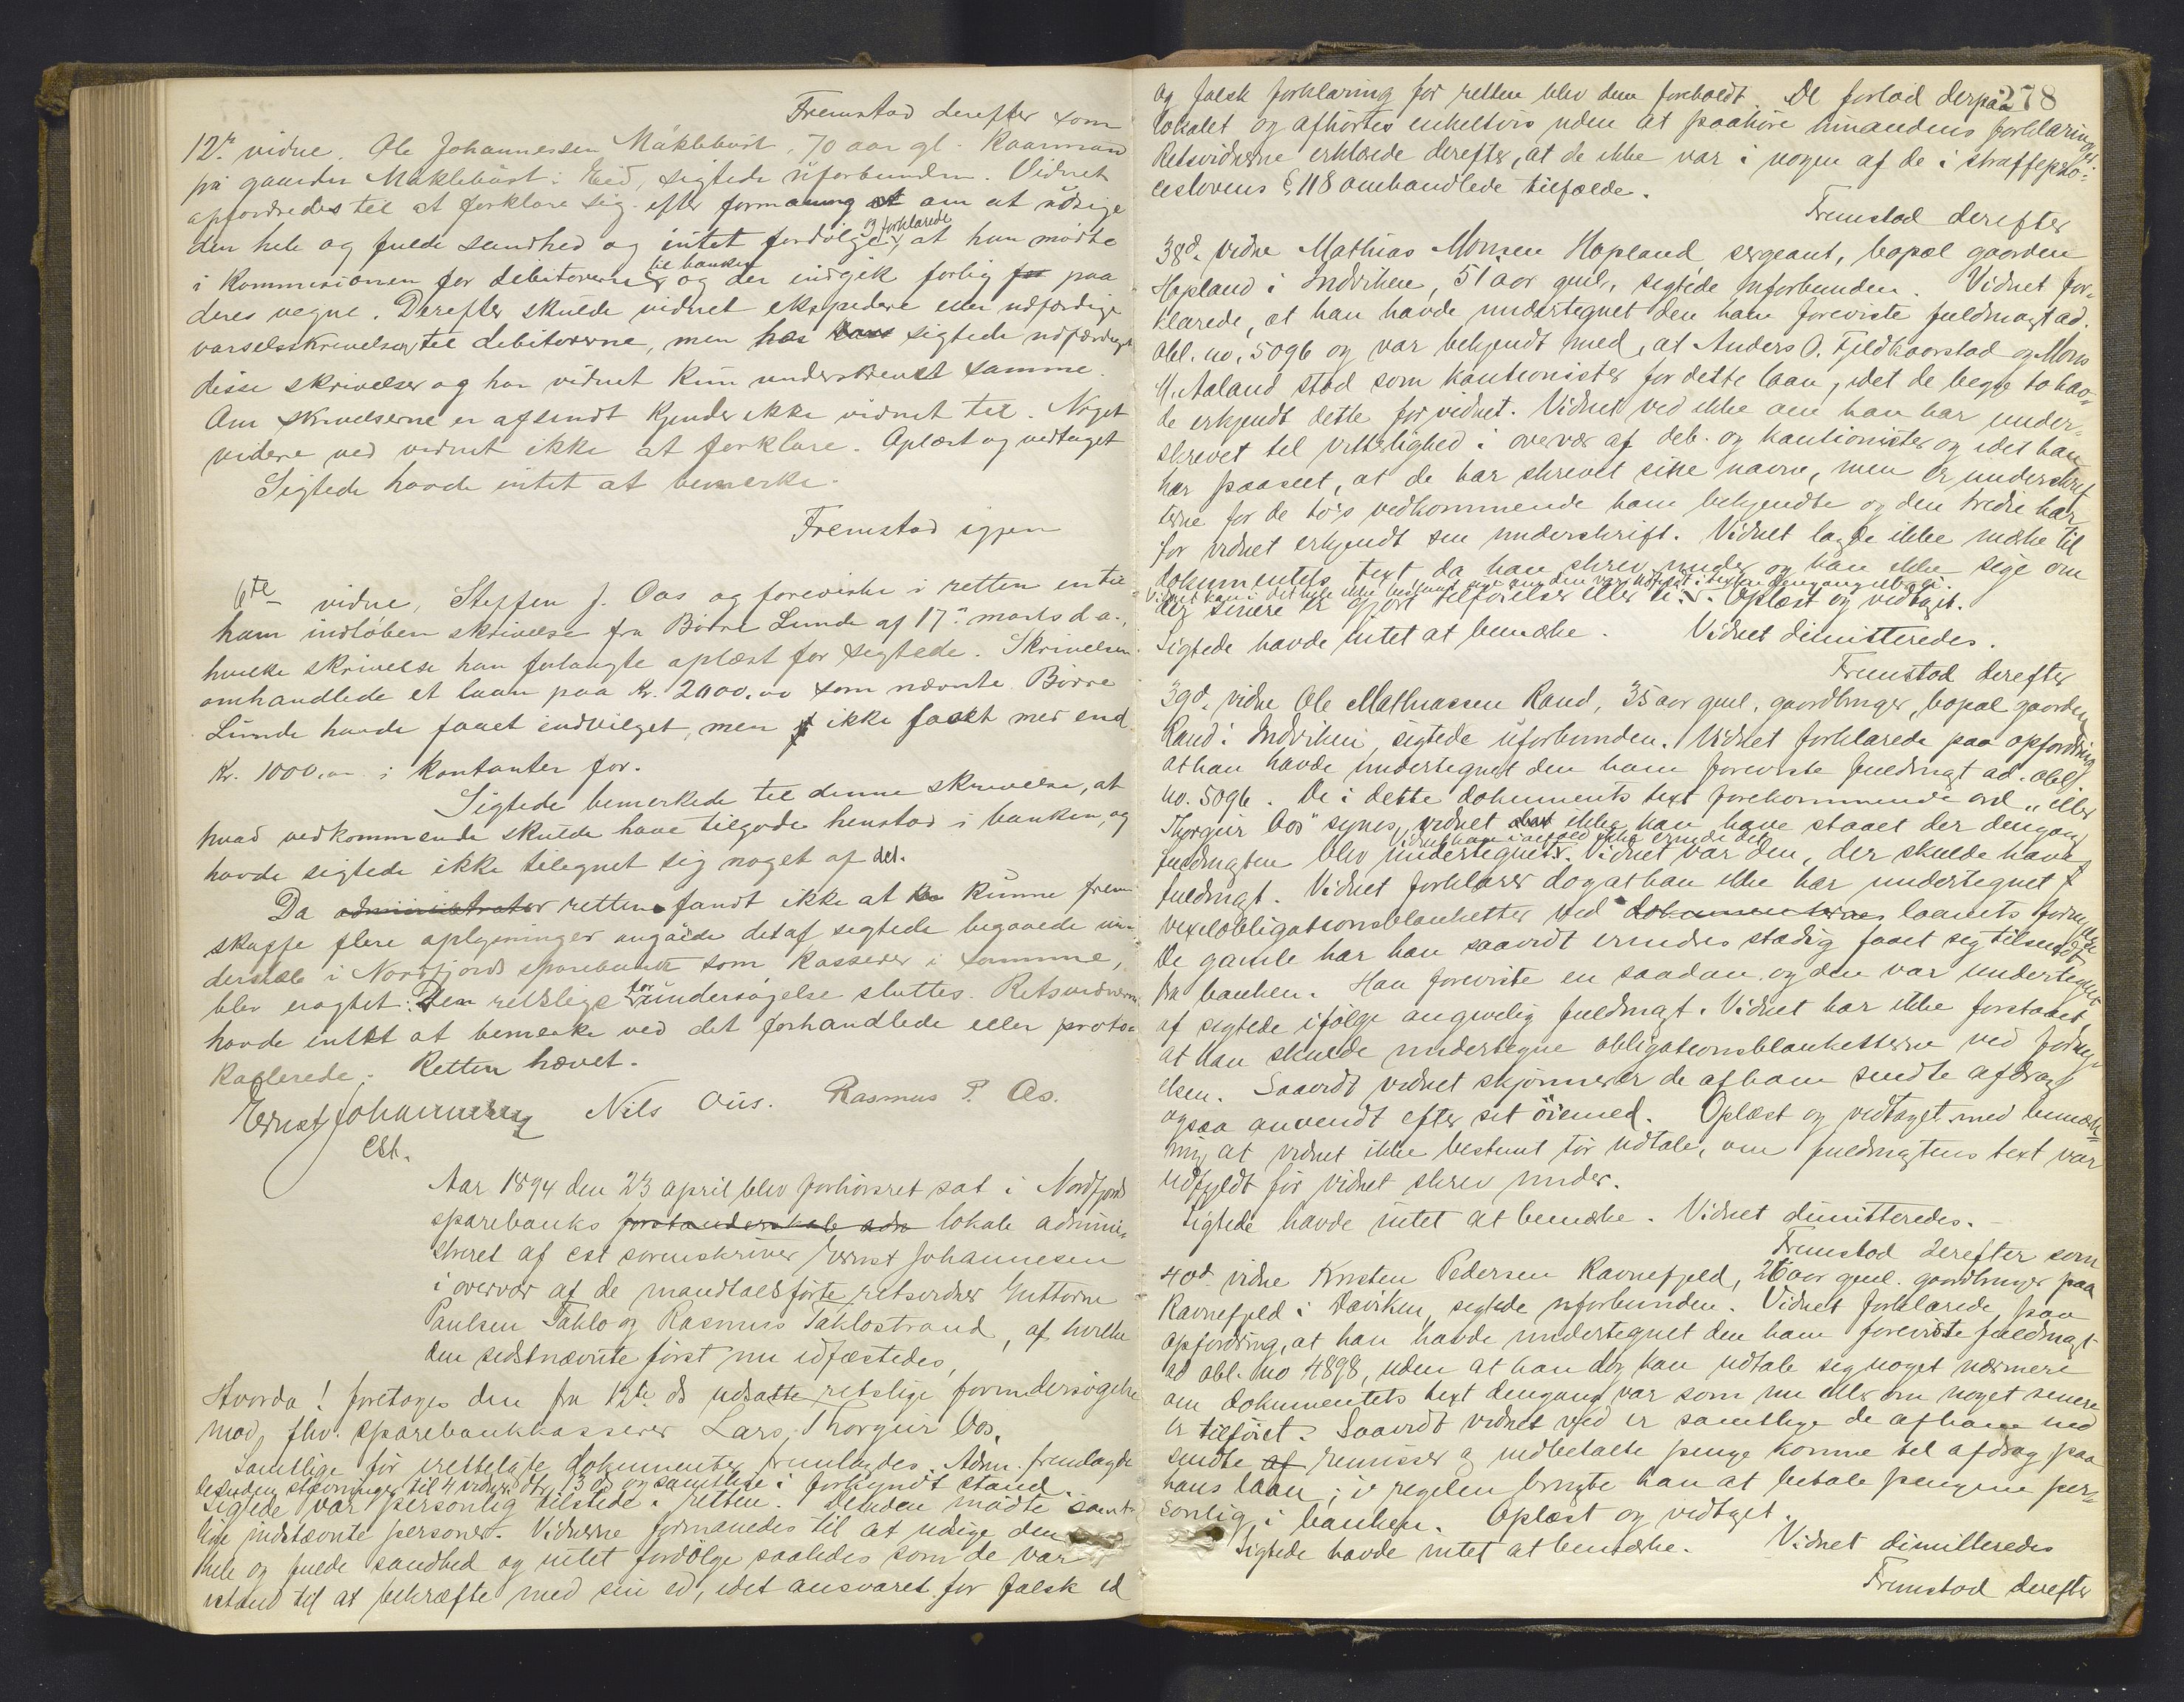 Fremstod derefter som
12te vidne. Ole Johannessen Mäklebüst, 70 aar gl. Kaarmand
på gaarden Mäklebüst i Eid, sigtede üforbunden. Vidnet
opfordredes til at forklare sig efter formaning at om at udsige
den hele og fulde sandhed og intet fordölge, og forklarede at han mödte
i Kommisionen for debitorerne til banken og der indgik forlig for paa
deres vegne. Derefter skulde vidnet ekspedere eller udfærdige
varselsskrivelser til debitorerne, men har sigtede udfærdiget
disse skrivelser og har vidnet kun underskrevet samme.
Om skrivelserne er afsendt kjender ikke vidnet til. Noget
videre ved vidnet ikke at forklare. Oplæst og vedtaget
Sigtede havde intet at bemerke.
Fremstod igjen
6te vidne, Steffen J. Oos og foreviste i retten en til
ham indlöben skrivelse fra Börre Lunde af 17de marts d. a.,
hvilke skrivelse han forlangte oplæst for sigtede. Skrivelsen
omhandlede et laan paa Kr. 2000.00 som nævnte Börre
Lunde havde faaet indvilget, men ikke faaet mer end
Kr. 1000.00 i kontanter for.
Sigtede bemerkede til denne skrivelse, at
hvad vedkommende skulde have tilgode henstod i banken, og
havde sigtede ikke tilegnet sig noget af det.
Da administrator retten fandt ikke at kunne frem
skaffe flere oplysninger angående det af sigtede begaaede un-
derslæb i Nordfjords sparebank som kasserer i samme,
blev eragtet: Den retslige forundersögelse sluttes. Retsvidnerne
havde intet at bemerke ved det forhandlede eller proto-
kollerede. Retten hævet.
Ernst Johannesen Nils Ous. Rasmus P. Os.
cst.
Aar 1894 den 23 april blev forhörsret sat i Nordfjords
sparebanks forstanderskab lokale admini-
streret af cst sorenskriver Ernst Johannesen
i overvær af de mandtalsförte retsvidner Guttorm
Paulsen Taklo og Rasmus Taklostrand, af hvilke
den sidstnævnte först nu edfæstedes,
Hvorda! foretoges den fra 12te ds udsatte retslige forundersögelse
mod fhv. sparebankkasserer Lars Thorgiir Oos,
Samtlige för irettelagte dokumenter fremlagdes. Adm. fremlagde
desuden stævninger til 4 vidner dtr. 13 ds og samtlige i forkyndt stand.
Sigtede var personlig tilstede i retten. Desuden mödte samt-
lige indstævnte personer. Vidnerne formanedes til at udsige den
hele og fulde sandhed og intet fordölge saaledes som de var
istand til at bekræfte med sin ed, idet ansvaret for falsk ed
278
og falsk forklaring for retten blev dem foreholdt. De forlod derpaa
lokalet og afhörtes enkeltvis uden at paahöre hinandens forklaringer
Retsvidnerne erklærede derefter, at de ikke var i nogen af de i straffepro-
ceslovens § 118 omhandlede tilfælde.
Fremstod derefter
38d. vidne Mathias Monsen Hopland sergeant, bopæl gaarden
Hopland i Indviken, 51 aar gml., sigtede uforbunden. Vidnet for-
klarede, at han havde undertegnet den ham foreviste fuldmagt ad.
obl. no. 5096 og var bekjendt med, at Anders O. Fjeldkaarstad og Mons
M. Aaland stod som kautionister for dette laan, idet de begge to hav-
de erkjendt dette for vidnet. Vidnet ved ikke om han har under-
skrevet til vitterlighed i overvær af deb. og kautionister og idet han
har paaseet, at de har skrevet sine navne, men er underskrif
terne for de to's vedkommende ham bekjendte og den tredie har
for vidnet erkjendt sin underskrift. Vidnet lagde ikke mærke til
dokumentets text da han skrev under og kan ikke sige om
der senere er gjort tilföielser eller ei. Oplæst og vedtaget.
Sigtede havde intet at bemærke. Vidnet dimitteredes.
Fremstod derefter
39d. vidne Ole Mathiassen Rand, 35 aar gml., gaardbruger, bopæl gaarden
Rand i Indviken, sigtede uforbunden. Vidnet forklarede paa opfordring
at han havde undertegnet den ham foreviste fuldmagt ad. obl.
no. 5096. De i dette dokuments text forekommende ord „eller
Thorgiir Oos" synes vidnet ikke kan have staaet der dengang
fuldmagten blev undertegnet. Vidnet kan i alfald ikke erindre det. Vidnet var den, der skulde have
fuldmagt. Vidnet forklarer dog at han ikke har undertegnet
vexelobligationsblanketter ved dokumenternes laanets fornyelse
De gamle har han saavidt erindres stadig faaet sig tilsendt
fra banken. Han foreviste en saadan og den var undertegnet
af sigtede ifölge angivelig fuldmagt. Vidnet har ikke forstaaet,
at han skulde undertegne obligationsblanketterne ved forny-
elsen. Saavidt vidnet skjönner er de af ham sendte afdrag
ogsaa anvendt efter sit öiemed. Oplæst og vedtaget med bemærk-
ning at vidnet ikke bestemt tör udtale, om fuldmagtens text var
udfyldt för vidnet skrev under.
Sigtede havde intet at bemærke. Vidnet dimitteredes.
Fremstod derefter som
40d. vidne Kristen Pedersen Ravnefjeld, 26 aar gml. gaardbruger paa
Ravnefjeld i Daviken, sigtede uforbunden. Vidnet forklarede paa
opfordring, at han havde undertegnet den ham foreviste fuldmagt
ad obl. no 4898, uden at han dog kan udtale sig noget nærmere
om dokumentets text dengang var som nu eller om noget senere
er tilföiet. Saavidt vidnet ved er samtlige de af ham ind
sendte af remisser og indbetalte penge komne til afdrag paa
hans laan; i regelen brugte han at betale pengene per-
sonlig i banken. Oplæst og vedtaget.
Sigtede havde intet at bemærke. Vidnet dimitteredes
Fremstod derefter